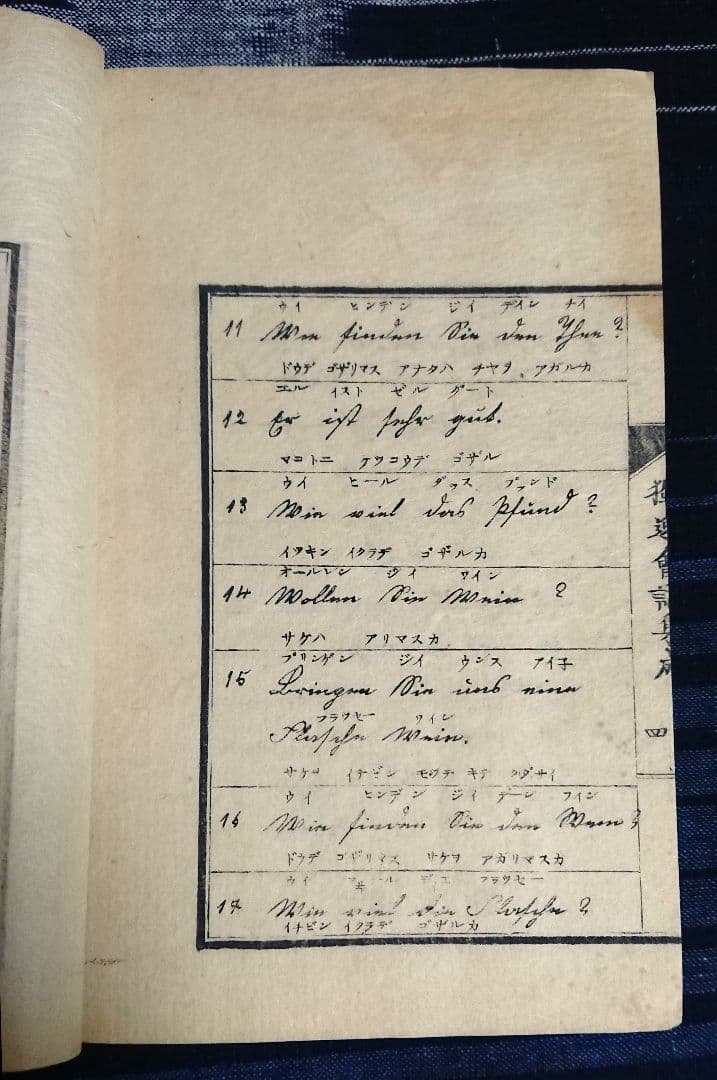 ウイ ヒンデン ジイ デイン テイ
11 Wie finden Sie den Thee?
ドウデ ゴザリマス アナタハ チヤヲ アガルカ
エル イスト ゼル グート
12 Er ist sehr gut.
マコトニ ケツコウデ ゴザル
ウイ ヒール ダッス プァンド
13 Wie viel das Pfund?
イツキン イクラデ ゴザルカ
オールレン ジイ ワイン
14 Wollen Sie Wein?
サケハ アリマスカ
ブリンゲン ジイ ウンス アイ子
15 Bringen Sie uns eine
フラツセー ワイン
Flasche Wein.
サケヲ イチビン モツテ キテ クダサイ
ウイ ヒンデン ジイ デーン フイン
16 Wie finden Sie den Wein?
ドウデ ゴザリマス サケヲ アガリマスカ
ウイ ヒール ディエ フラツセー
17 Wie viel die Flasche?
イチビン イクラデ ゴザルカ
獨逸會話集成
四